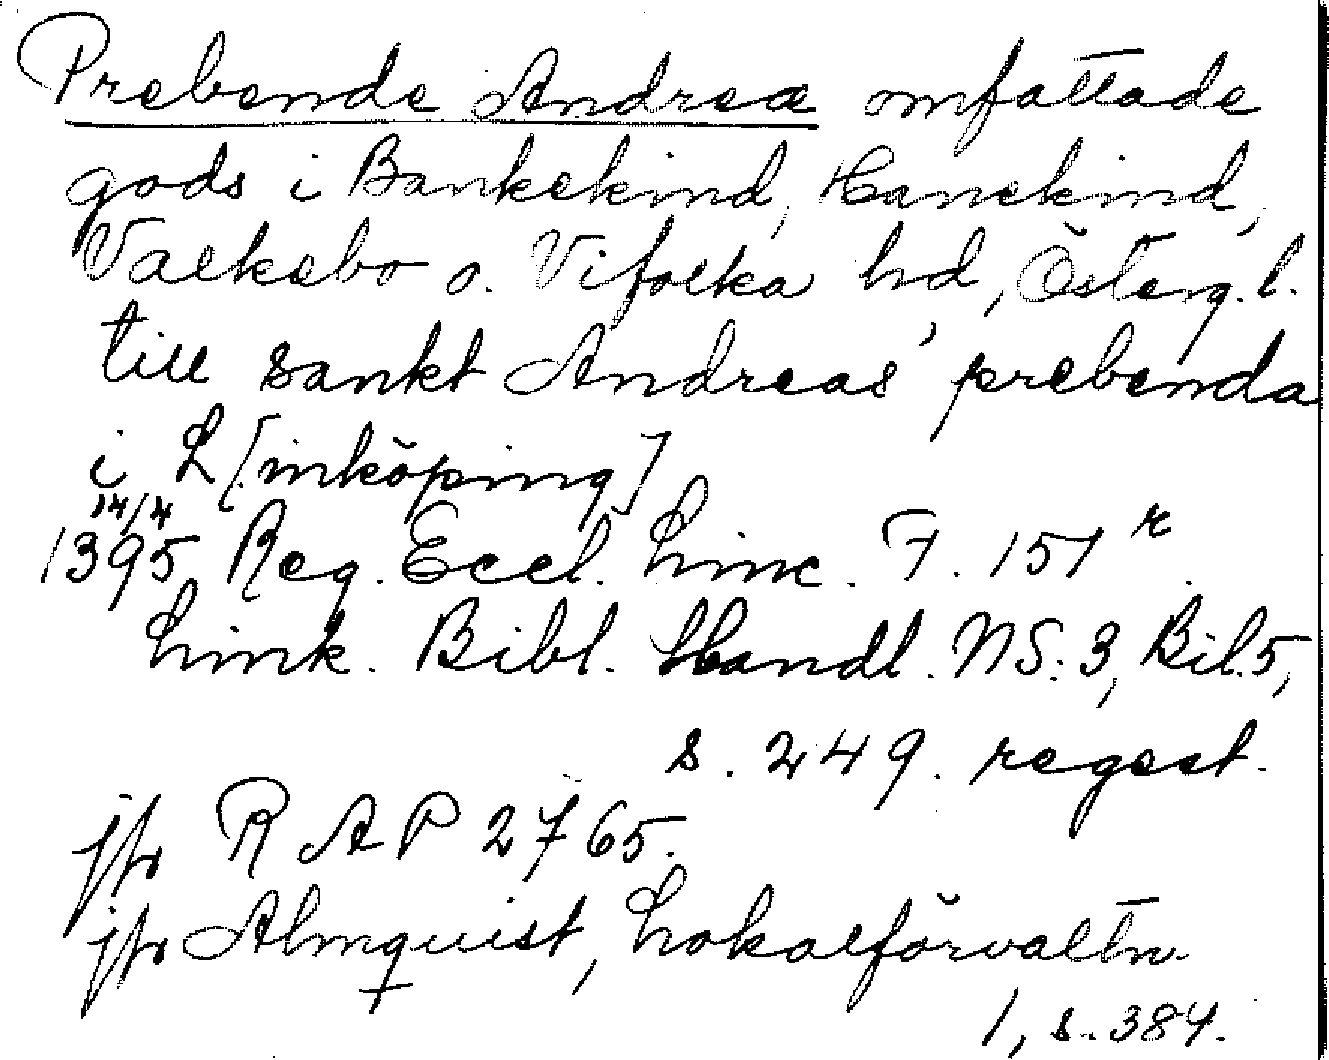 Prebende Andreæ omfattade
gods i Bankekind, Hanekind,
Valkebo o. Vifolka hd, Österg.l.
till sankt Andreas' prebenda
i L[inköping]
14/4
1395 Reg. Eccl. Linc. F. 151 r.
Link. Bibl. Handl. NS: 3, Bil. 5,
s. 249. regest.
jfr RAP 2765.
jfr Almquist, Lokalförvaltn.
1, s. 384.